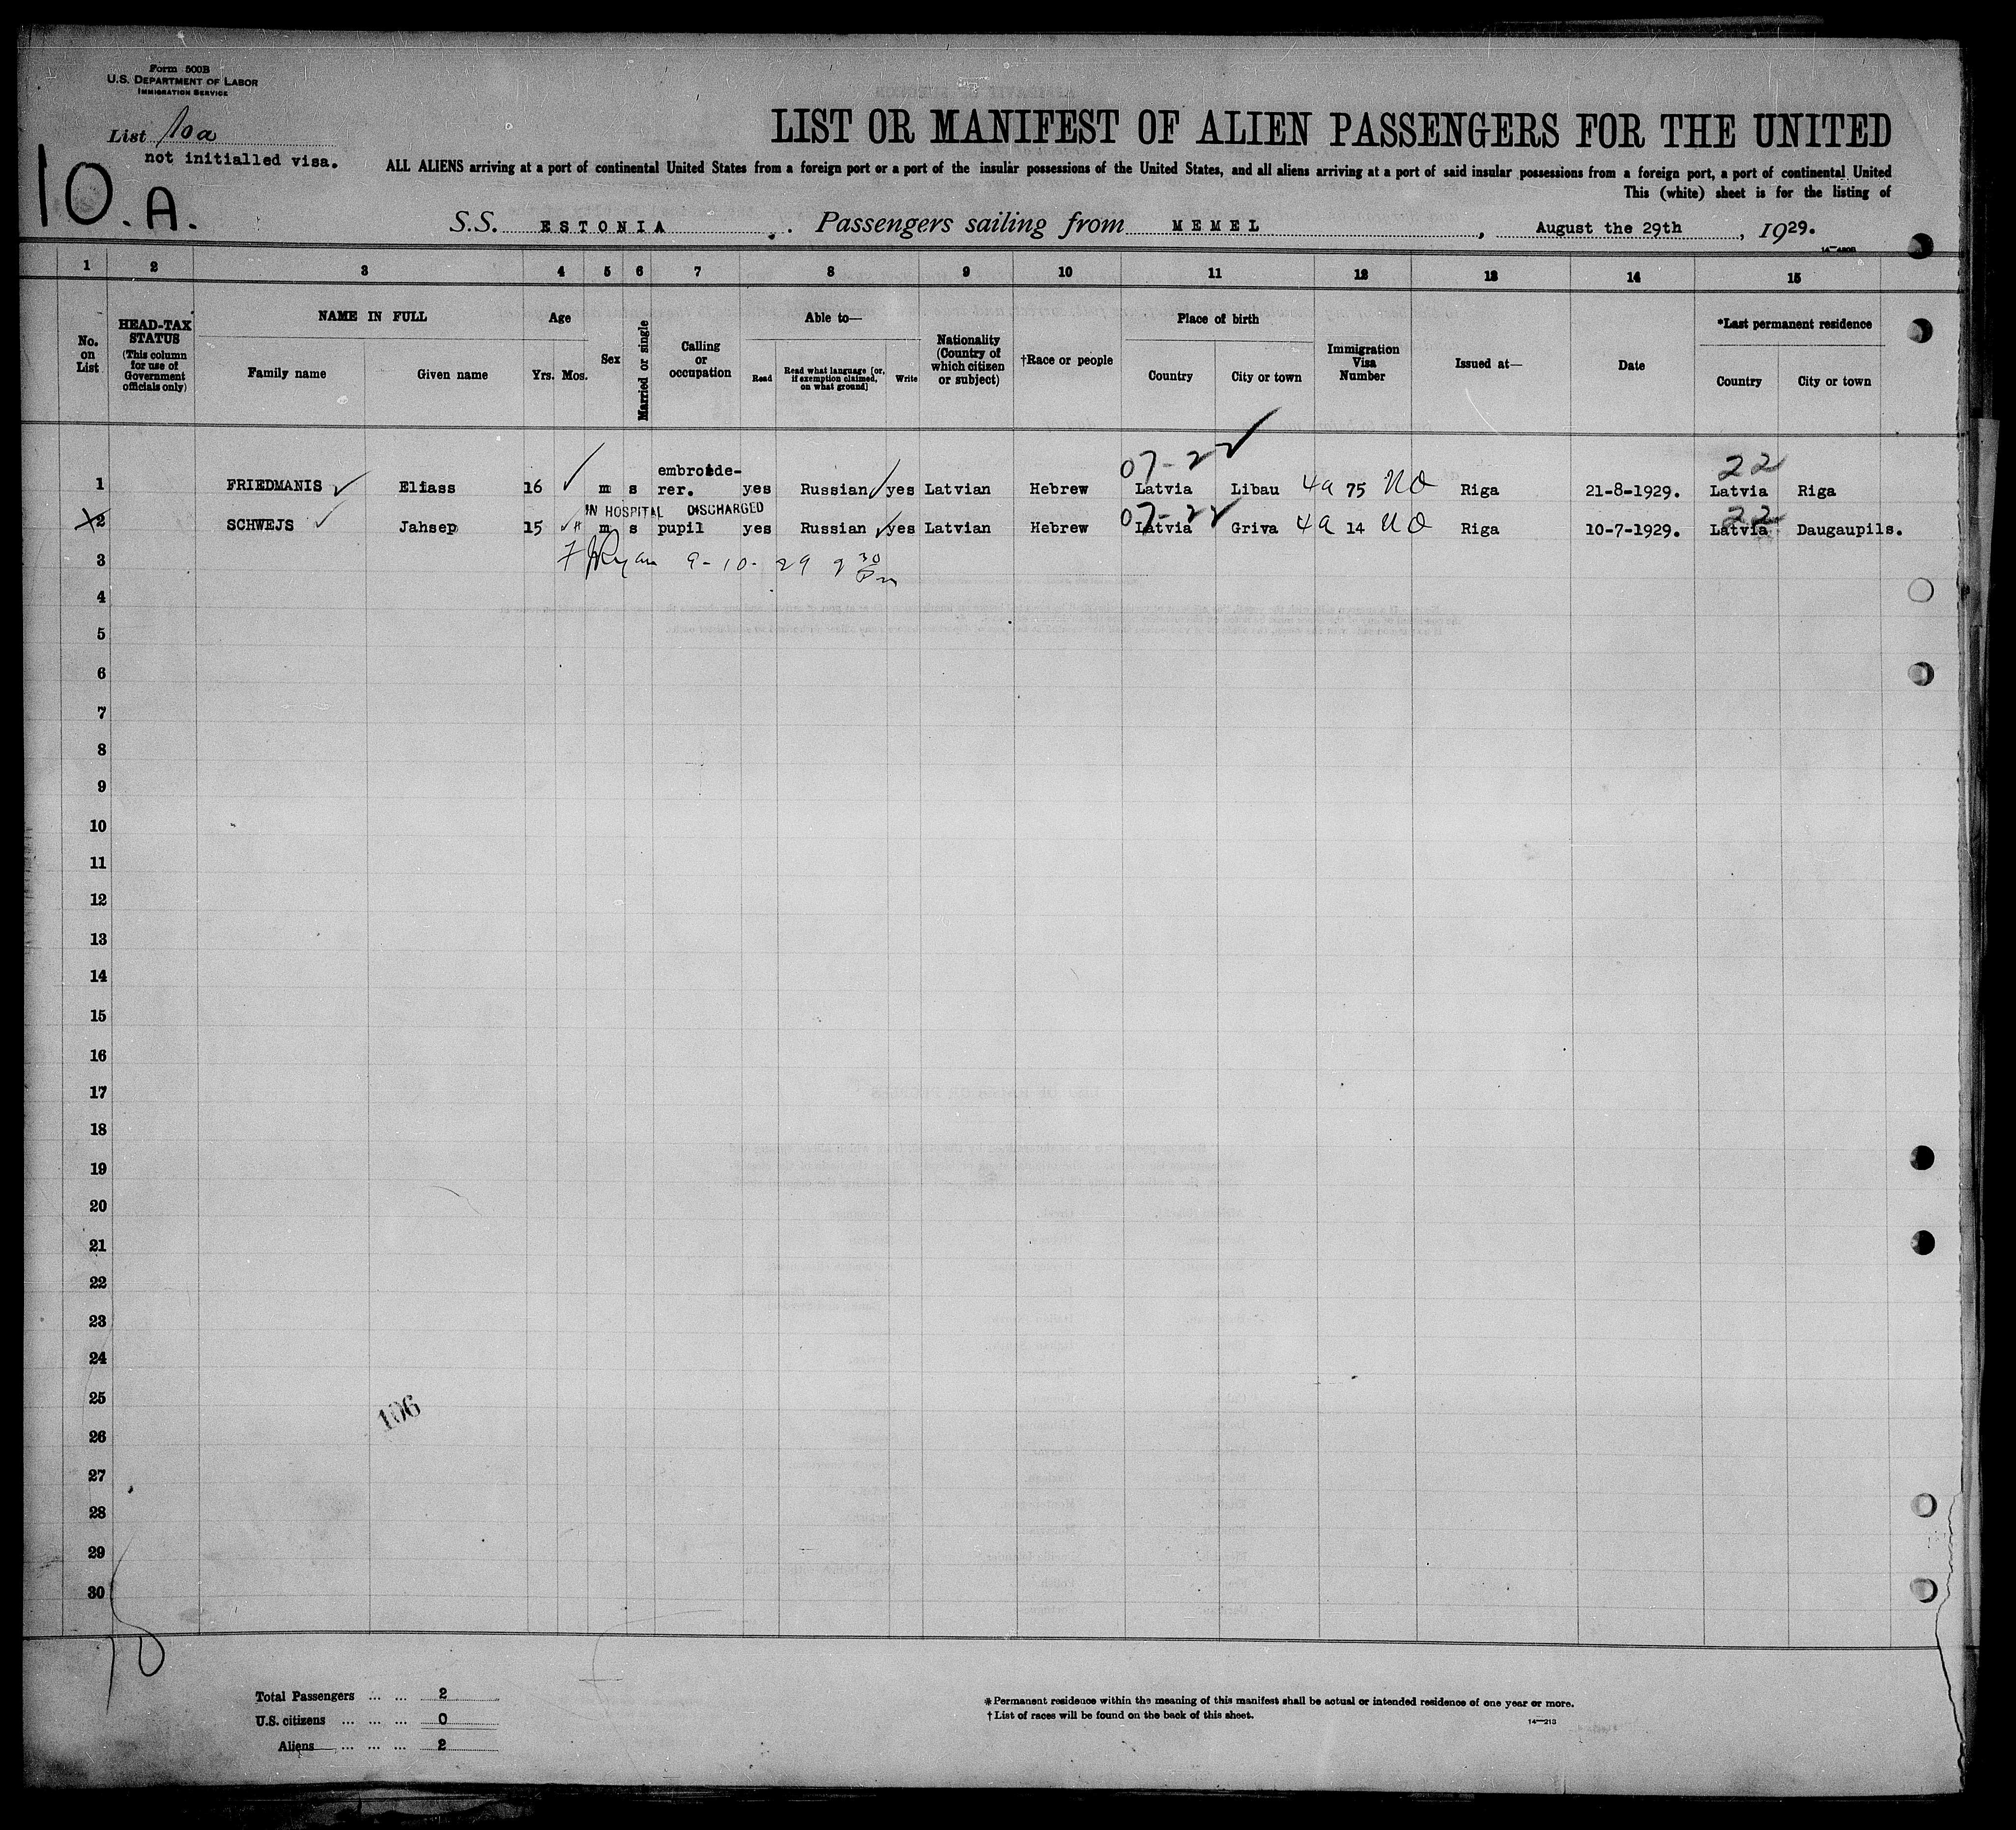 Form 500B
U.S. DEPARTMENT OF LABOR
IMMIGRATION SERVICE
List 10a
not initialled visa.
10.A.
LIST OR MANIFEST OF ALIEN PASSENGERS FOR THE UNITED
ALL ALIENS arriving at a port of continental United States from a foreign port or a port of the insular possessions of the United States, and all aliens arriving at a port of said insular possessions from a foreign port, a port of continental United
This (white) sheet is for the listing of
S.S. ESTONIA Passengers sailing from MEMEL, August the 29th, 1929.
1 2 3 4 5 6 7 8 9 10 11 12 13 14 15
No. on List
HEAD-TAX STATUS
(This column for use of Government officials only)
NAME IN FULL
Family name
Given name
Age
Yrs. Mos.
Sex
Married or single
Calling or occupation
Able to—
Read
Read what language [or, if exemption claimed, on what ground]
Write
Nationality (Country of which citizen or subject)
†Race or people
Place of birth
Country
City or town
Immigration Visa Number
Issued at—
Date
*Last permanent residence
Country
City or town
07-22 22
embroide-
1 FRIEDMANIS Eliass 16 m s rer. yes Russian yes Latvian Hebrew Latvia Libau 4a 75 NQ Riga 21-8-1929. Latvia Riga
IN HOSPITAL DISCHARGED
07-22 22
2 SCHWEJS Jahsep 15 m s pupil yes Russian yes Latvian Hebrew Latvia Griva 4a 14 NQ Riga 10-7-1929. Latvia Daugaupils.
3 Ryan 9-10-29 2 30 Pm
4
5
6
7
8
9
10
11
12
13
14
15
16
17
18
19
20
21
22
23
24
25
106
26
27
28
29
30
Total Passengers ... ... 2
U.S. citizens ... ... ... 0
Aliens ... ... ... 2
*Permanent residence within the meaning of this manifest shall be actual or intended residence of one year or more.
†List of races will be found on the back of this sheet.
14—213